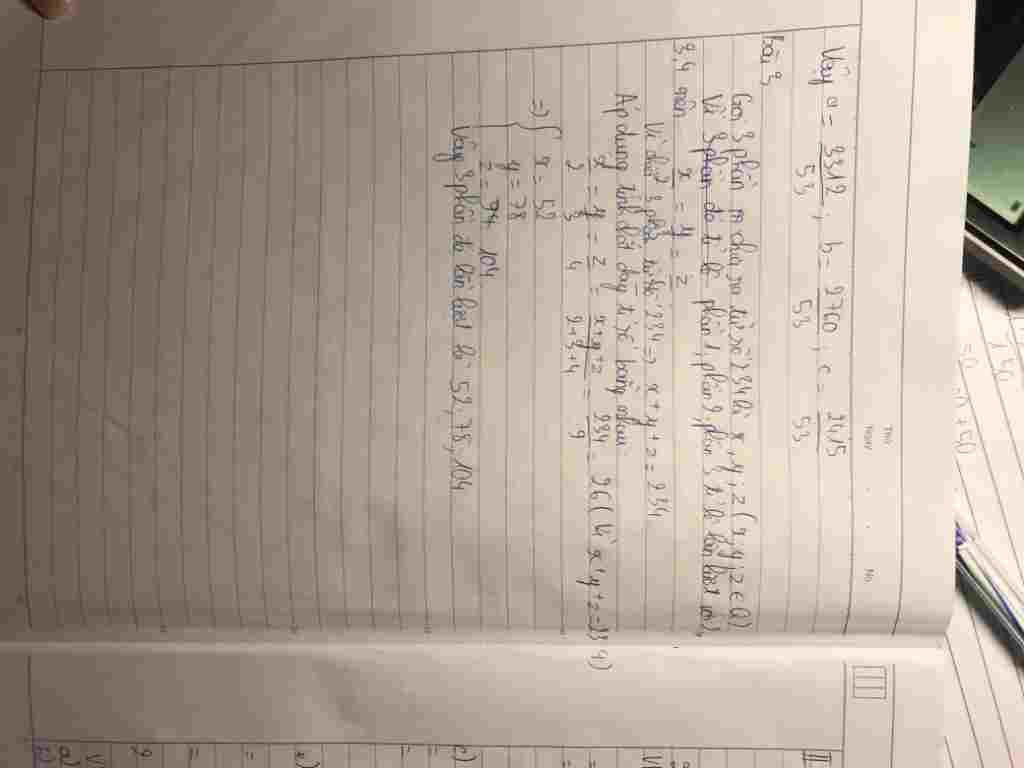 Thứ
Ngày . . No.
Vậy a = 3312/53 ; b = 2760/53 , c = 2415/53
Bài 3
Gọi 3 phần chia ra từ số 234 là x, y, z (x, y, z ∈ Q)
Vì 3 phần đó tỉ lệ phần 1, phần 2, phần 3 tỉ lệ lần lượt với 2,
3,4 nên x/2 = y/3 = z/4
Vì chia 3 phần từ số 234 => x + y + z = 234
Áp dụng tính chất dãy tỉ số bằng nhau
x/2 = y/3 = z/4 = x+y+z/2+3+4 = 234/9 = 26 (Vì x+y+z=234)
=> { x = 52
y = 78
z = 104
Vậy 3 phần đó lần lượt là 52, 78, 104
II
c)
=